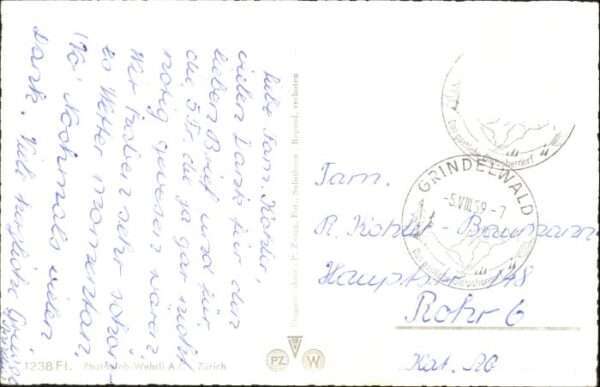 Liebe Fam. Kohler,
vielen Dank für den
lieben Brief und für
die 5 Fr. die ja gar nicht
nötig gewesen wären.
Wir haben sehr schön-
es Wetter momentan.
Nochmals vielen
Dank. Viele herzliche Grüsse
GRINDELWALD
-5.VIII.59-7
Das Gletscherdorf
Fam.
R. Kohler-Baumann
Hauptstr. 148
Rohr 6
Kt. AG
PZ
W
1238 Fl. Photoglob-Wehrli A.G., Zürich